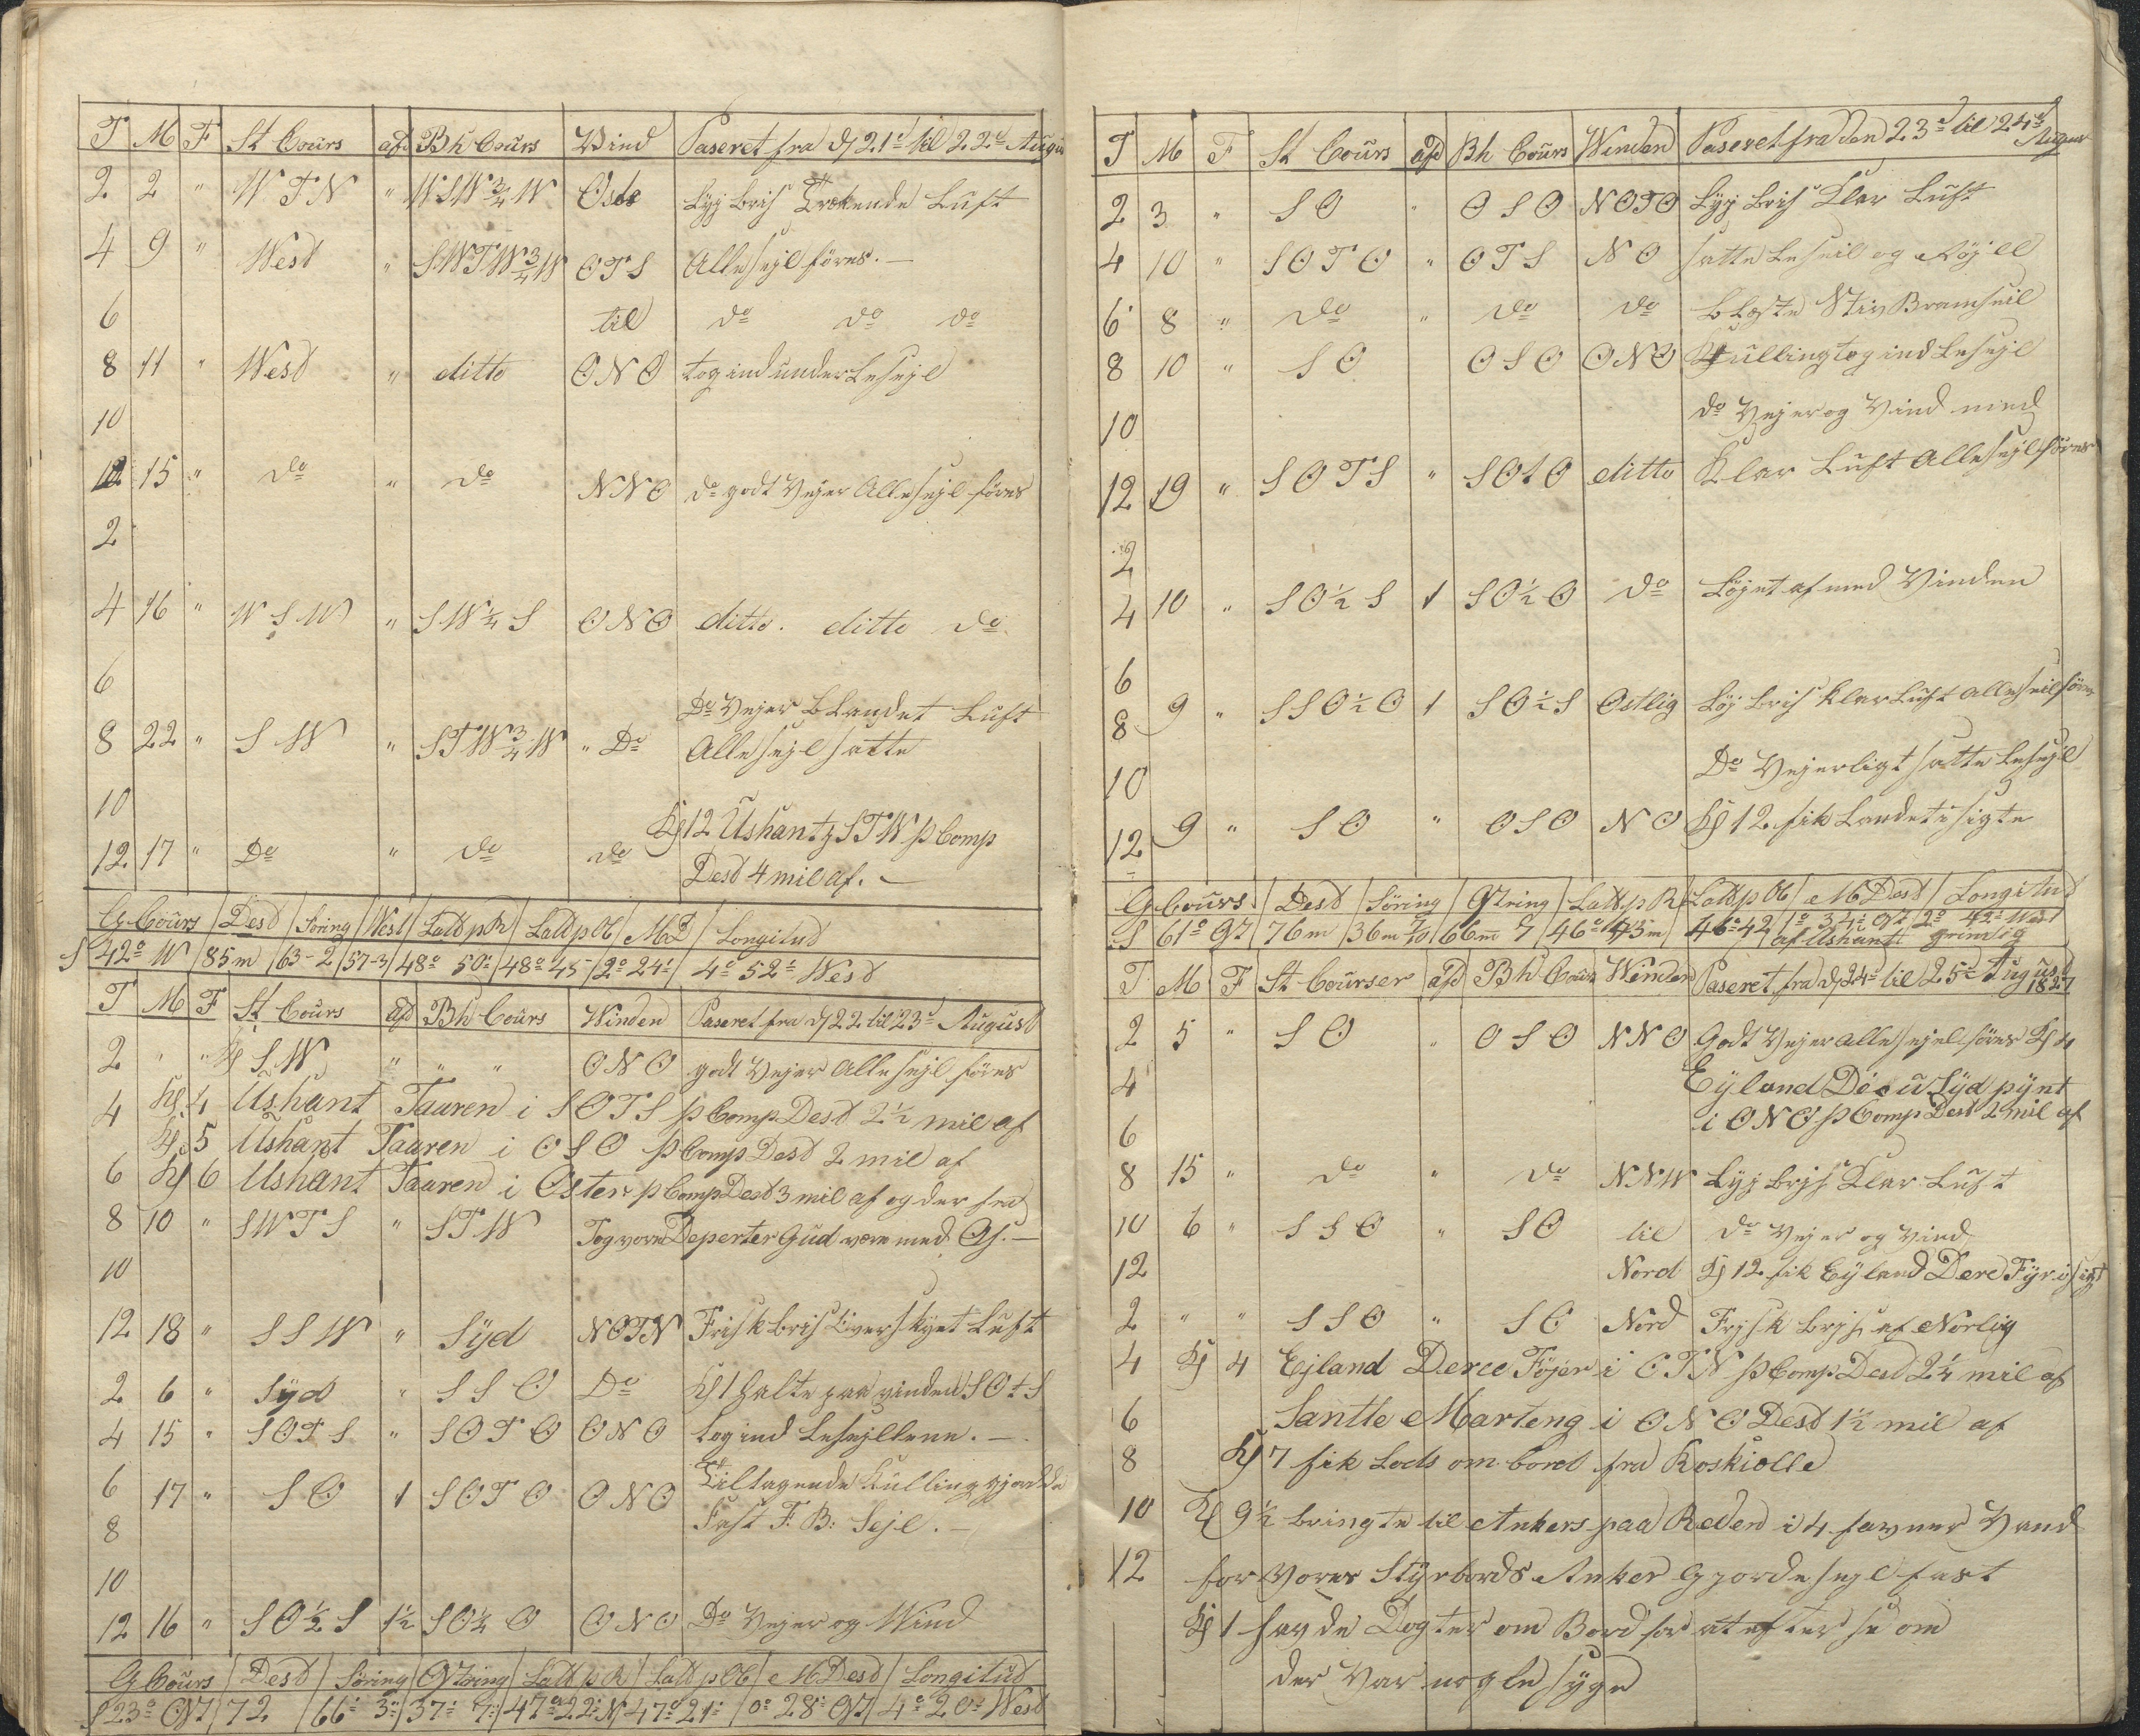 T M F St Cours afd Bh Cours Wind Paseret fra d 21d til 22d Augu
2 2 " W T N " WSW 3/4 W Oste Lyj bris Trækende Luft
4 9 " West " SWTW 3/4 W OTS Alle sejl føres. —
6 til do do do
8 11 " West " ditto ONO tog ind under Lesejl
10
12 15 " do " do NNO do godt Vejer Alle sejl føres
2
4 16 " W S W " SW 1/4 S ONO ditto. ditto do
6
Do Vejer Blandet Luft
8 22 " S W " STW 3/4 W " Do Alle sejl satte
10
Kl 12 Ushant STW p Comp
12 17 " Do " do do Desd 4 mil af. —
G Cours / Desd / Søring / West / Latt p R / Latt p Ob / M D / Longitud
S 42° W / 85 m / 63-2 / 57-3 / 48° 50' / 48° 45' / 2° 24' / 4° 52' West
T M F St Cours afd Bh Cours Winden Paseret fra d 22 til 23d August
2 " " S W " " " ONO godt Vejer Alle sejl føres
4 Kl 4 Ushant Taaren i SOTS p Comp Desd 2 1/2 mil af
Kl 5 Ushant Taaren i OSO p Comp Desd 2 mil af
6 Kl 6 Ushant Taaren i Øster p Comp Desd 3 mil af og der fra
8 10 " SWTS " STW Tog vores Deperter Gud være med Os. —
10
12 18 " SSW " Syd NOTN Frisk bris Overskyet Luft
2 6 " Syd " SSO Do Kl 1 halte paa vinden SOtS
4 15 " SOTS " SOTO ONO tog ind Lesejllene. —
6 17 " SO 1 SOTO ONO Tiltagende Kulling gjorde
8 Fast F. B: Sejl. —
10
12 16 " SO 1/2 S 1 1/2 SO 1/4 O ONO Do Vejer og Wind
G Cours / Desd / Søring / Østring / Latt p R / Latt p Ob / M Desd / Longitud
S 23° Øt / 72 / 66' 3" / 37' 7" / 47° 22' N / 47° 21' / 0° 28' Øt / 4° 20' West
T M F St Cours afd Bh Cours Winden Paseret fra den 23d til 24d August
2 3 " SO " OSO NOTO Lyj bris Klar Luft
4 10 " SOTO " OTS NO satte Leseil og Røjel
6 8 " do " do do Bløste Stiv Bramseil
8 10 " SO OSO ONO Kulling tog ind Lesejl
10 do Vejer og Vind med
12 19 " SOTS " SOtO ditto Klar Luft Alle sejl føres
2
4 10 " SO 1/2 S 1 SO 1/2 O do Løjet af med Vinden
6
8 9 " SSO 1/2 O 1 SO 1/2 S Ostlig Løj bris klar Luft alle seil føres
10 Do Vejerligt satte Lesejl
12 9 " SO " OSO NO Kl 12 fik Landet i sigte
G Cours / Desd / Søring / Østring / Latt. p R / Latt p Ob / M Desd / Longitud
S 61° Øt / 76 m / 36 m 7/10 / 66 m 7 / 46° 43 m / 46° 42 / 1° 34' Øt / 2° 42' West
af Ushant
T M F St Courser afd Bh Cours Winden Paseret fra d 24d til 25d August 1827
2 5 " SO " OSO NNO Godt Vejer alle sejel føres Kl 4
4 Eyland Dieu Syd pynt
6 i ONO p Comp Desd 2 mil af
8 15 " do " do NNW Lyj brjs Klar Luft
10 6 " SSO " SO til do Vejer og Vind
12 Nord Kl 12 fik Eyland Dere Fyr i sigt
2 " " SSO " SO Nord Frisk brjs af Norlig
4 Kl 4 Ejland Deree Føjer i OTN p Comp. Desd 2 1/4 mil af
6 Santte Marteng i ONO Desd 1 1/2 mil af
8 Kl 7 fik Lods om bord fra Koskiolle
10 Kl 9 1/2 bringte til Ankers paa Reden i 4 favner Vand
12 for Vores Styrbords Anker Gjorde sejl fast
Kl 1 havde Dogter om Bord for at efter se om
der Var nogle syge